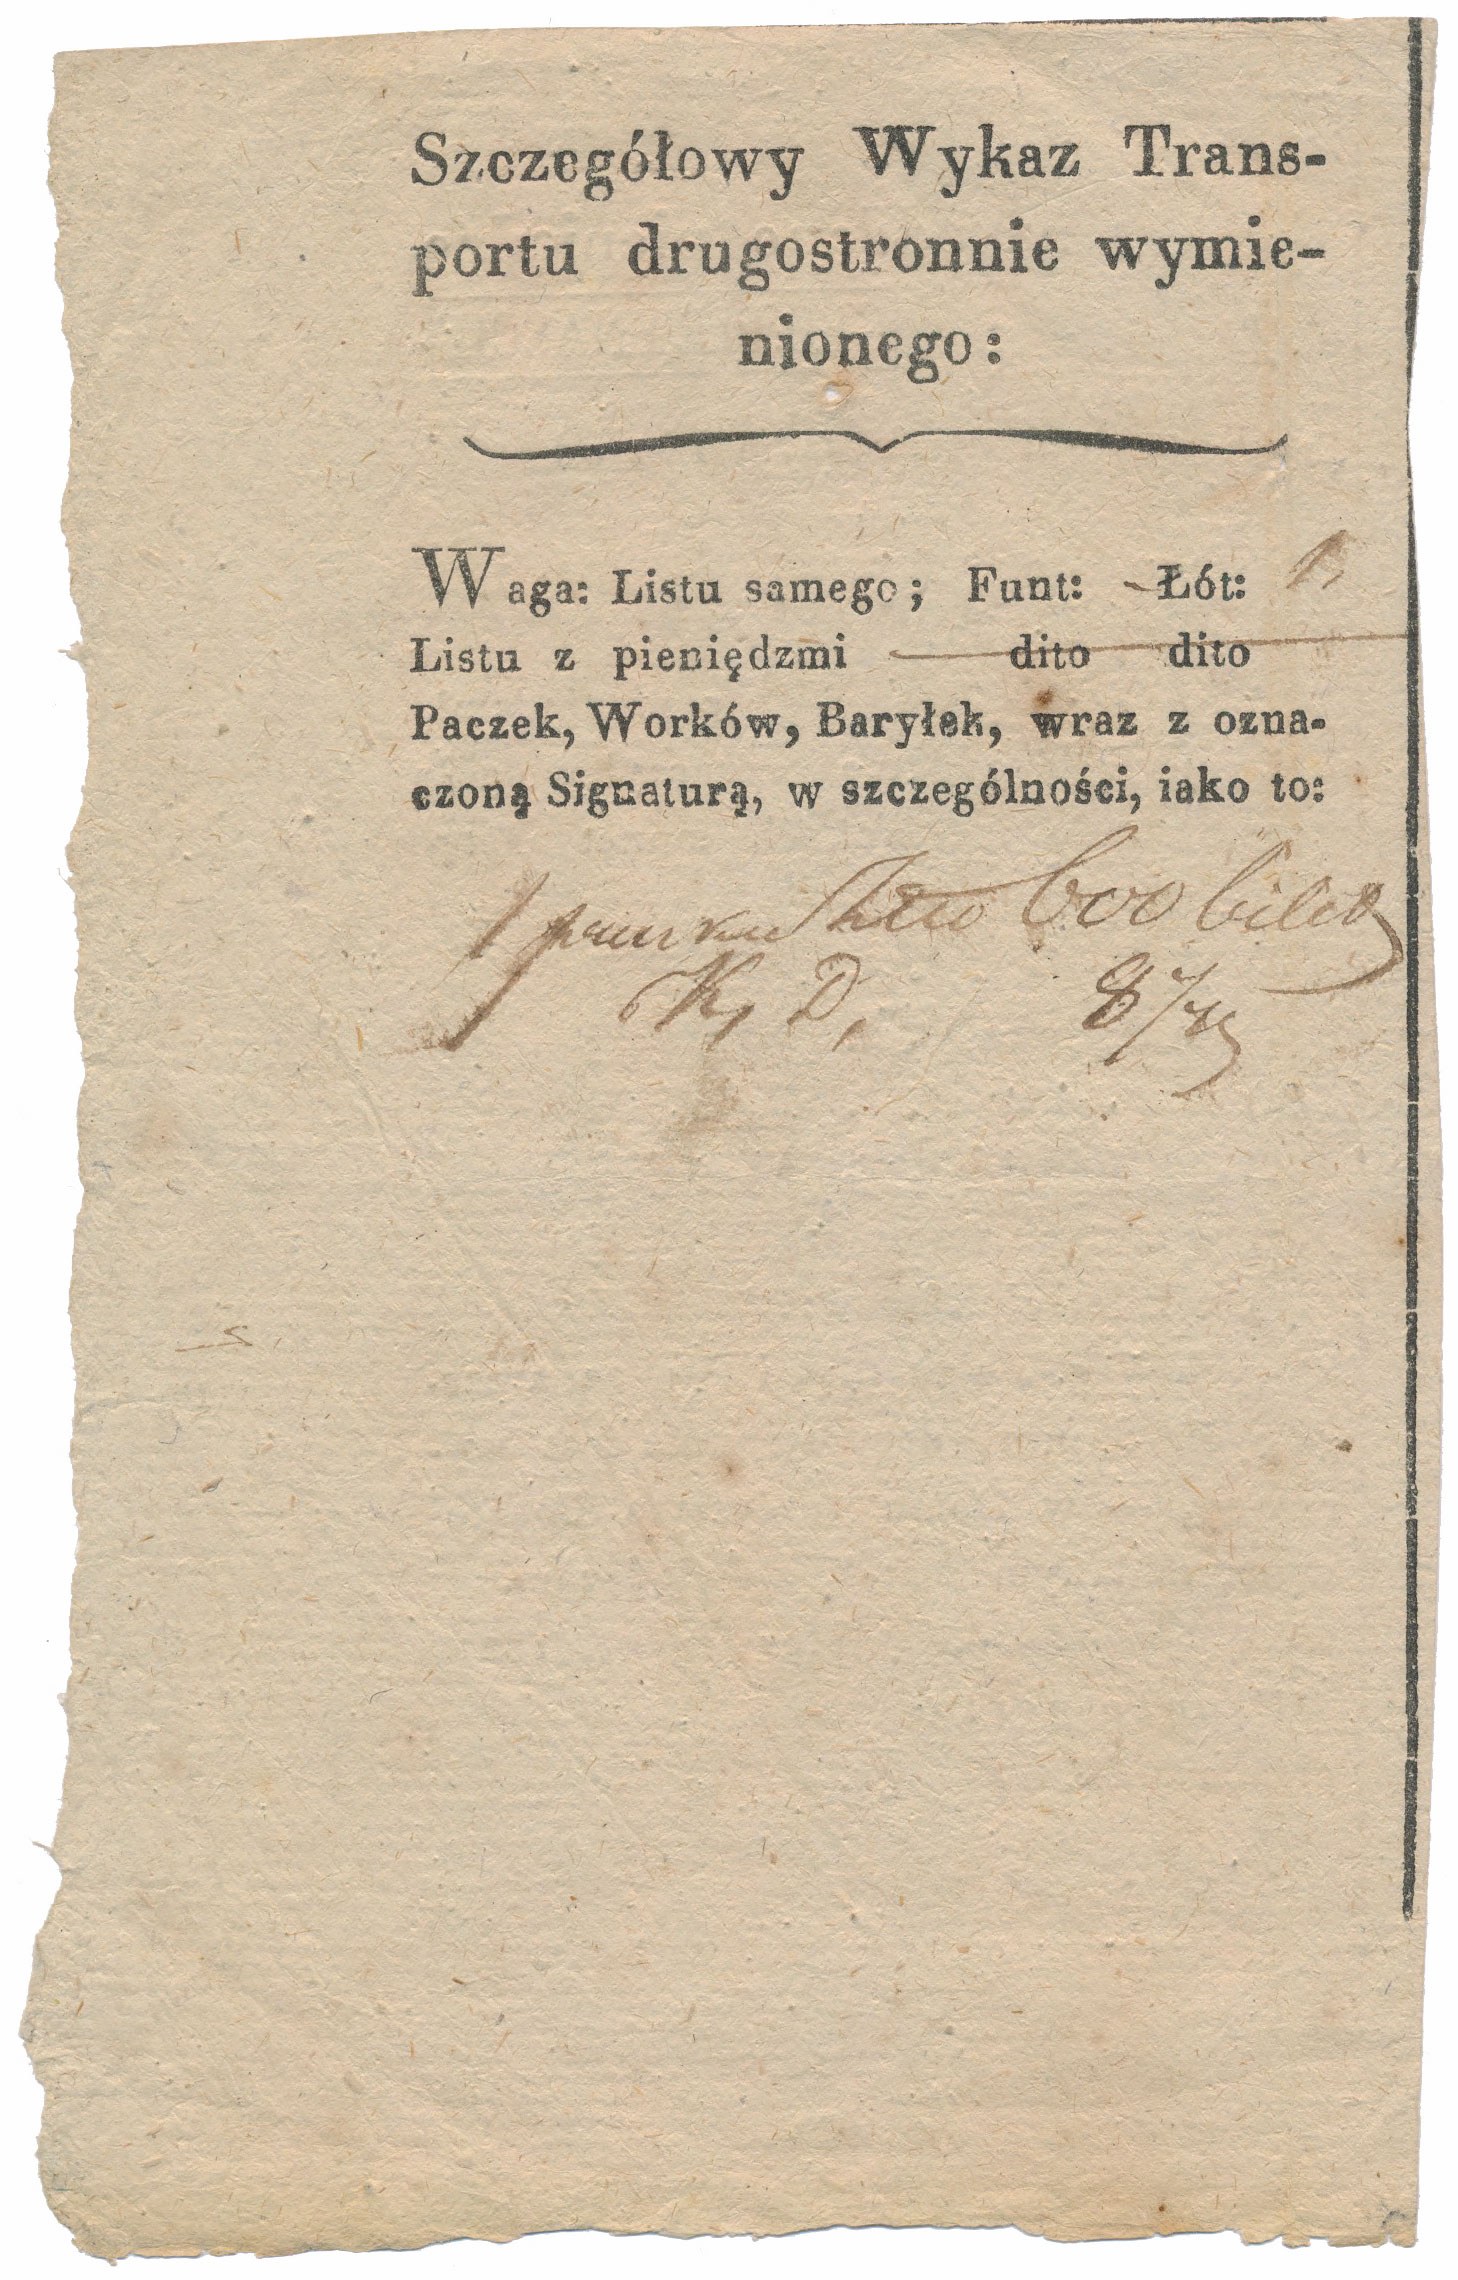 Szczegółowy Wykaz Trans-
portu drugostronnie wymie-
nionego:
Waga: Listu samego; Funt: - Łót: 1,
Listu z pieniędzmi — dito dito
Paczek, Worków, Baryłek, wraz z ozna-
czoną Signaturą, w szczególności, iako to:
1 600 bilet
K, D, 8/